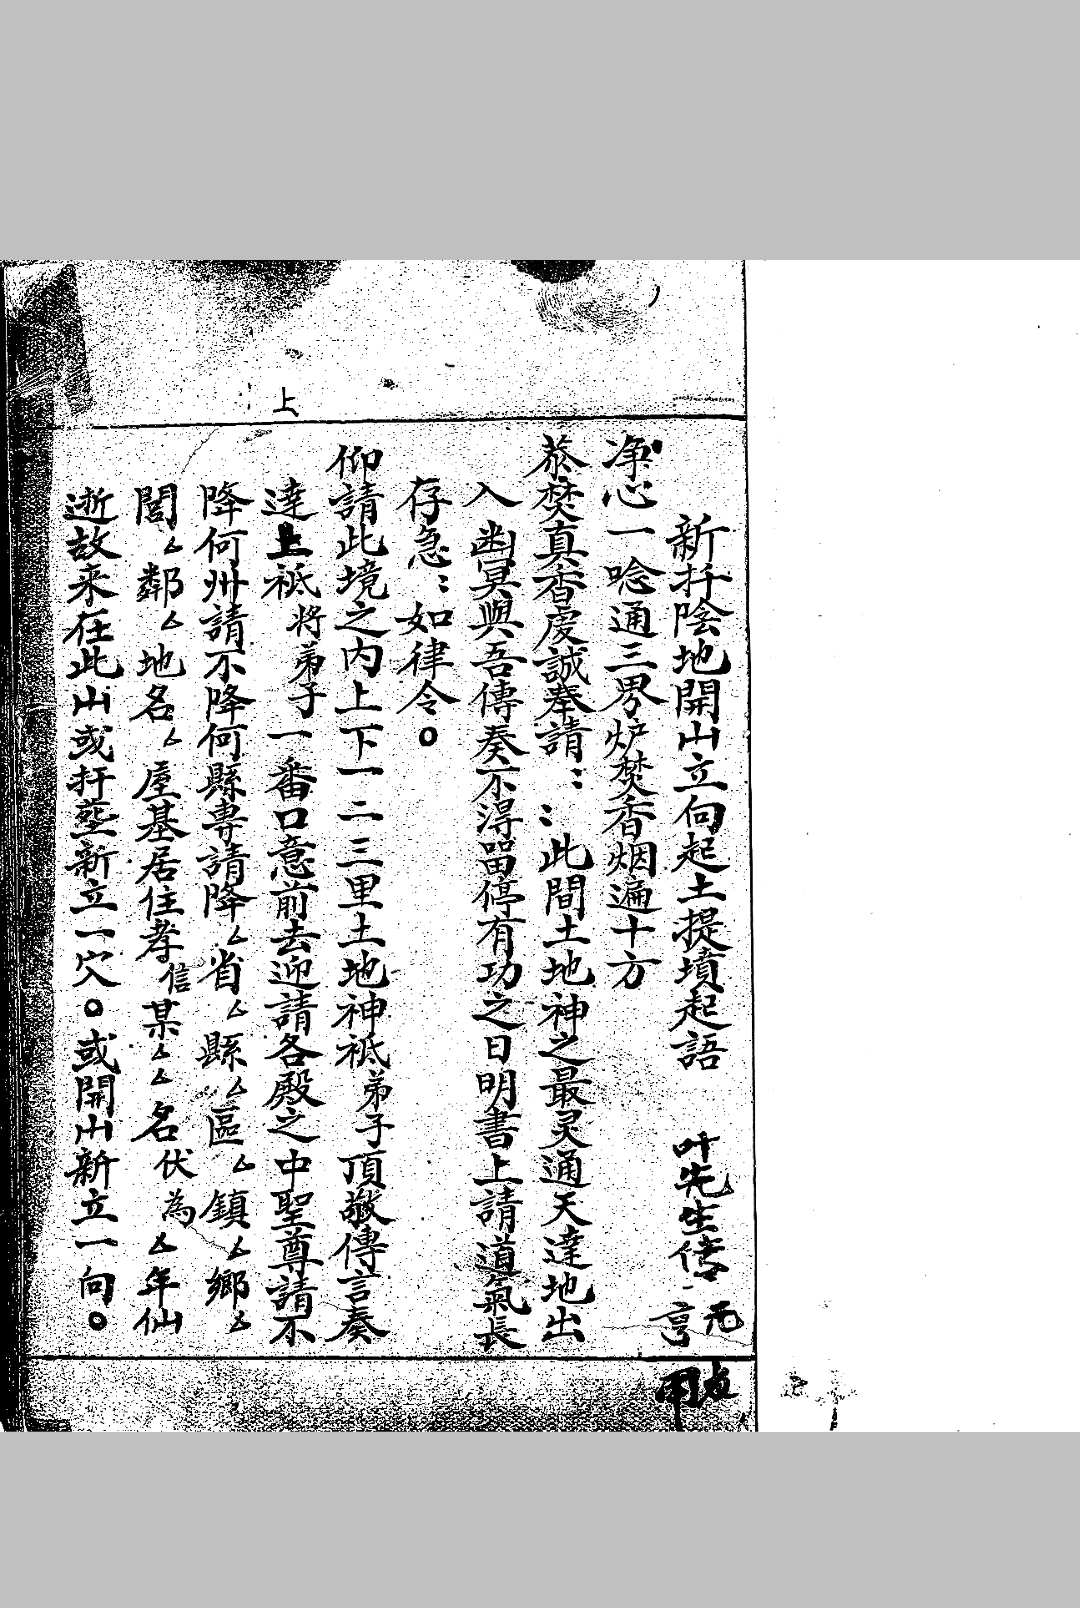 新扦陰地開山立向起土提墳起語 叶先生傳 元亨
用
净心一唸通三界炉焚香烟遍十方
焚真香虔誠奉請〻〻此間土地神之最灵通天達地出
入幽冥與吾傳奏不得畄停有功之日明書上請道氣長
存急〻如律令。
仰請此境之内上下一二三里土地神祗弟子頂敬傳言奏
上
達上祗將弟子一番口意前去迎請各殿之中聖尊請不
降何州請不降何縣專請降厶省厶縣厶區厶鎮厶鄉厶
閭厶鄰厶地名厶屋基居住孝信某厶厶名伏為厶年仙
逝故来在此山或扦塟新立一穴。或開山新立一向。